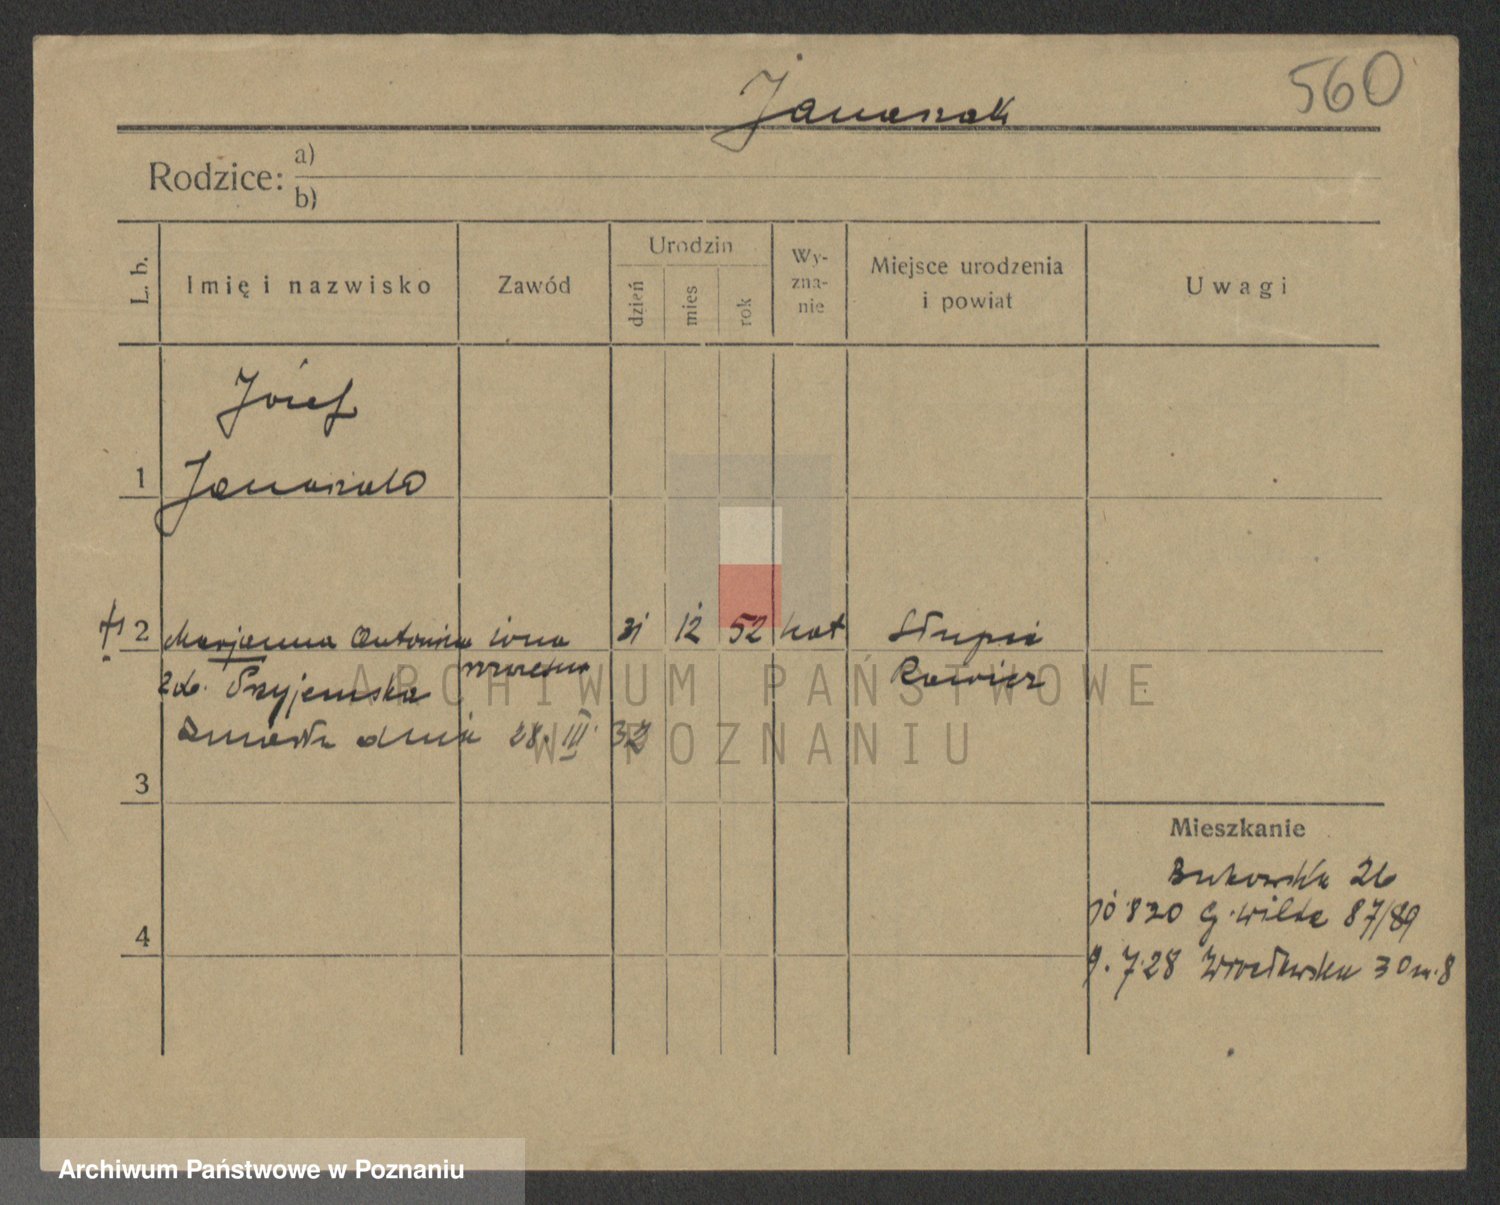 560
Janaszak
Rodzice: a)
b)
L. b.
Imię i nazwisko
Zawód
Urodzin
dzień
mies
rok
Wy-
zna-
nie
Miejsce urodzenia
i powiat
Uwagi
Józef
1 Janaszak
2 Marjanna Antonina żona 31 12 52 kat Słupia
Rawicz
zd. Przyjemska
Zmarła dnia 28. III 32
3
4
Mieszkanie
Bukowska 26
G. Wilda 87/89
9.7.28 Wrocławska 30 m. 8
ARCHIWUM PAŃSTWOWE
W POZNANIU
Archiwum Państwowe w Poznaniu